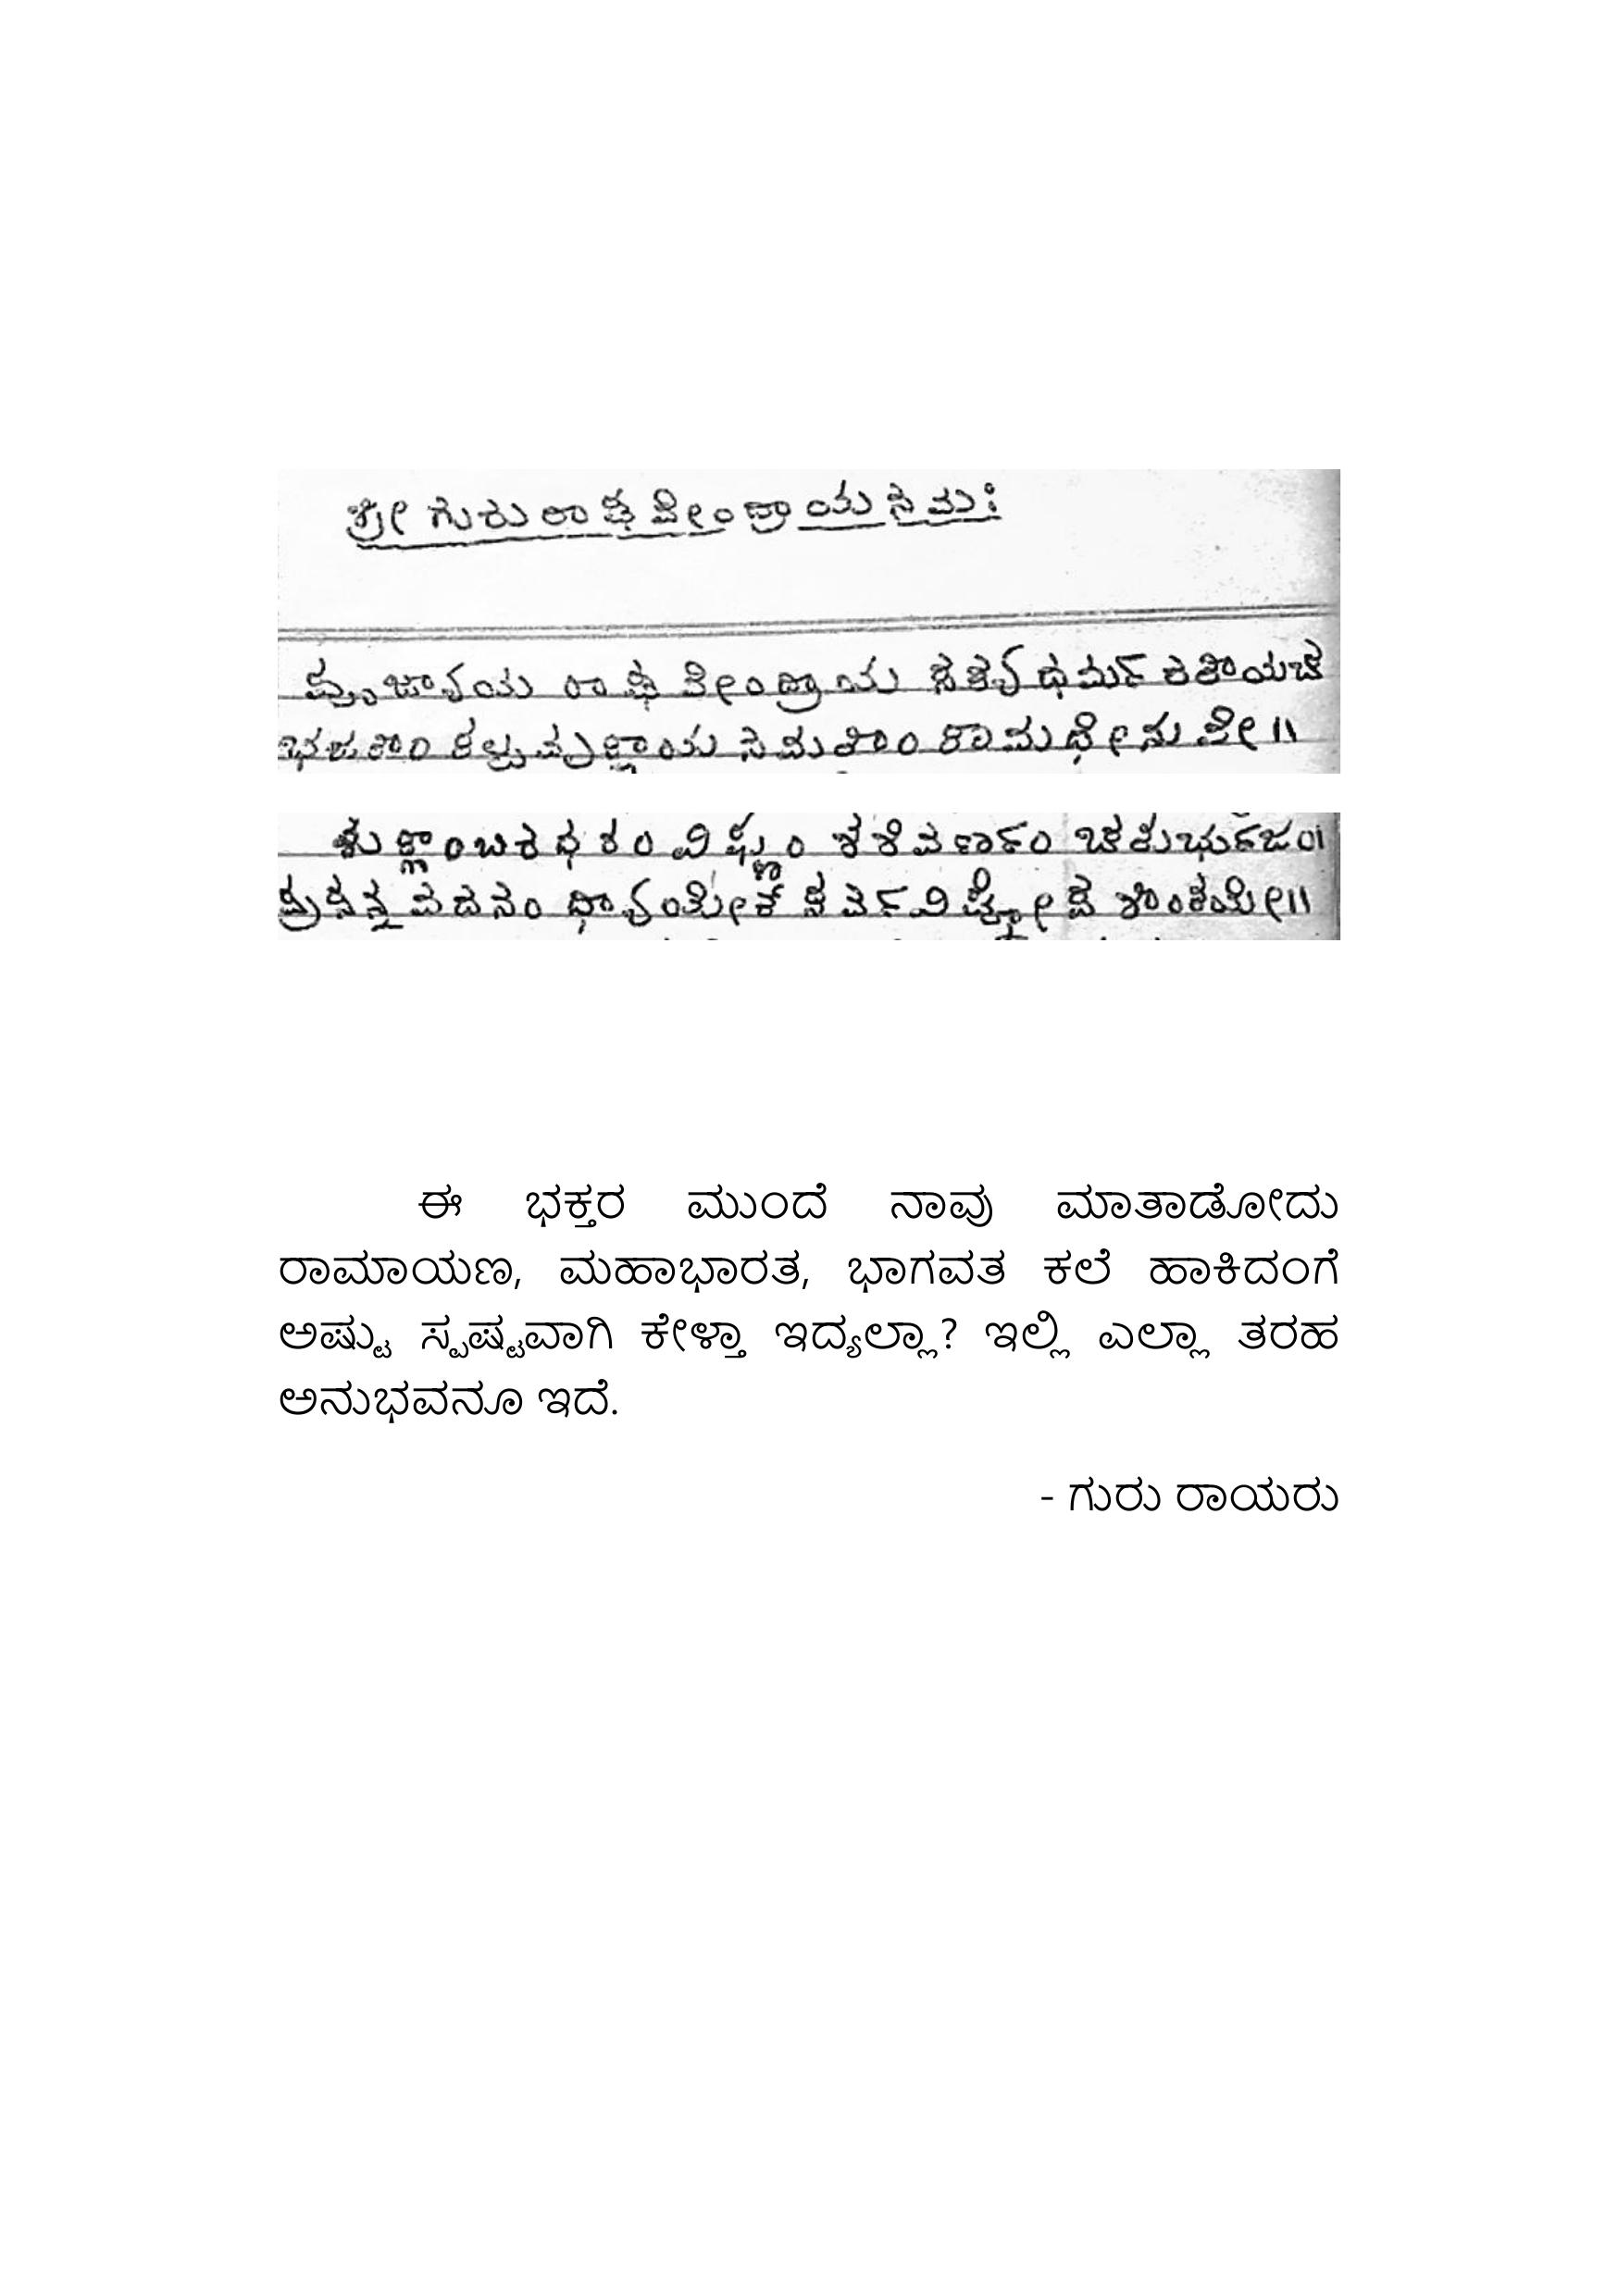 ಶ್ರೀ ಗುರು ರಾಘವೇಂದ್ರಾಯ ನಮಃ
ಪೂಜ್ಯಾಯ ರಾಘವೇಂದ್ರಾಯ ಸತ್ಯಧರ್ಮರತಾಯಚ
ಭಜತಾಂ ಕಲ್ಪವೃಕ್ಷಾಯ ನಮತಾಂ ಕಾಮಧೇನುವೇ॥
ಶುಕ್ಲಾಂಬರಧರಂ ವಿಷ್ಣುಂ ಶಶಿವರ್ಣಂ ಚತುರ್ಭುಜಂ।
ಪ್ರಸನ್ನ ವದನಂ ಧ್ಯಾಯೇತ್ ಸರ್ವವಿಘ್ನೋಪ ಶಾಂತಯೇ॥
ಈ ಭಕ್ತರ ಮುಂದೆ ನಾವು ಮಾತಾಡೋದು
ರಾಮಾಯಣ, ಮಹಾಭಾರತ, ಭಾಗವತ ಕಲೆ ಹಾಕಿದಂಗೆ
ಅಷ್ಟು ಸ್ಪಷ್ಟವಾಗಿ ಕೇಳ್ತಾ ಇದ್ಯಲ್ಲಾ? ಇಲ್ಲಿ ಎಲ್ಲಾ ತರಹ
ಅನುಭವನೂ ಇದೆ.
- ಗುರು ರಾಯರು